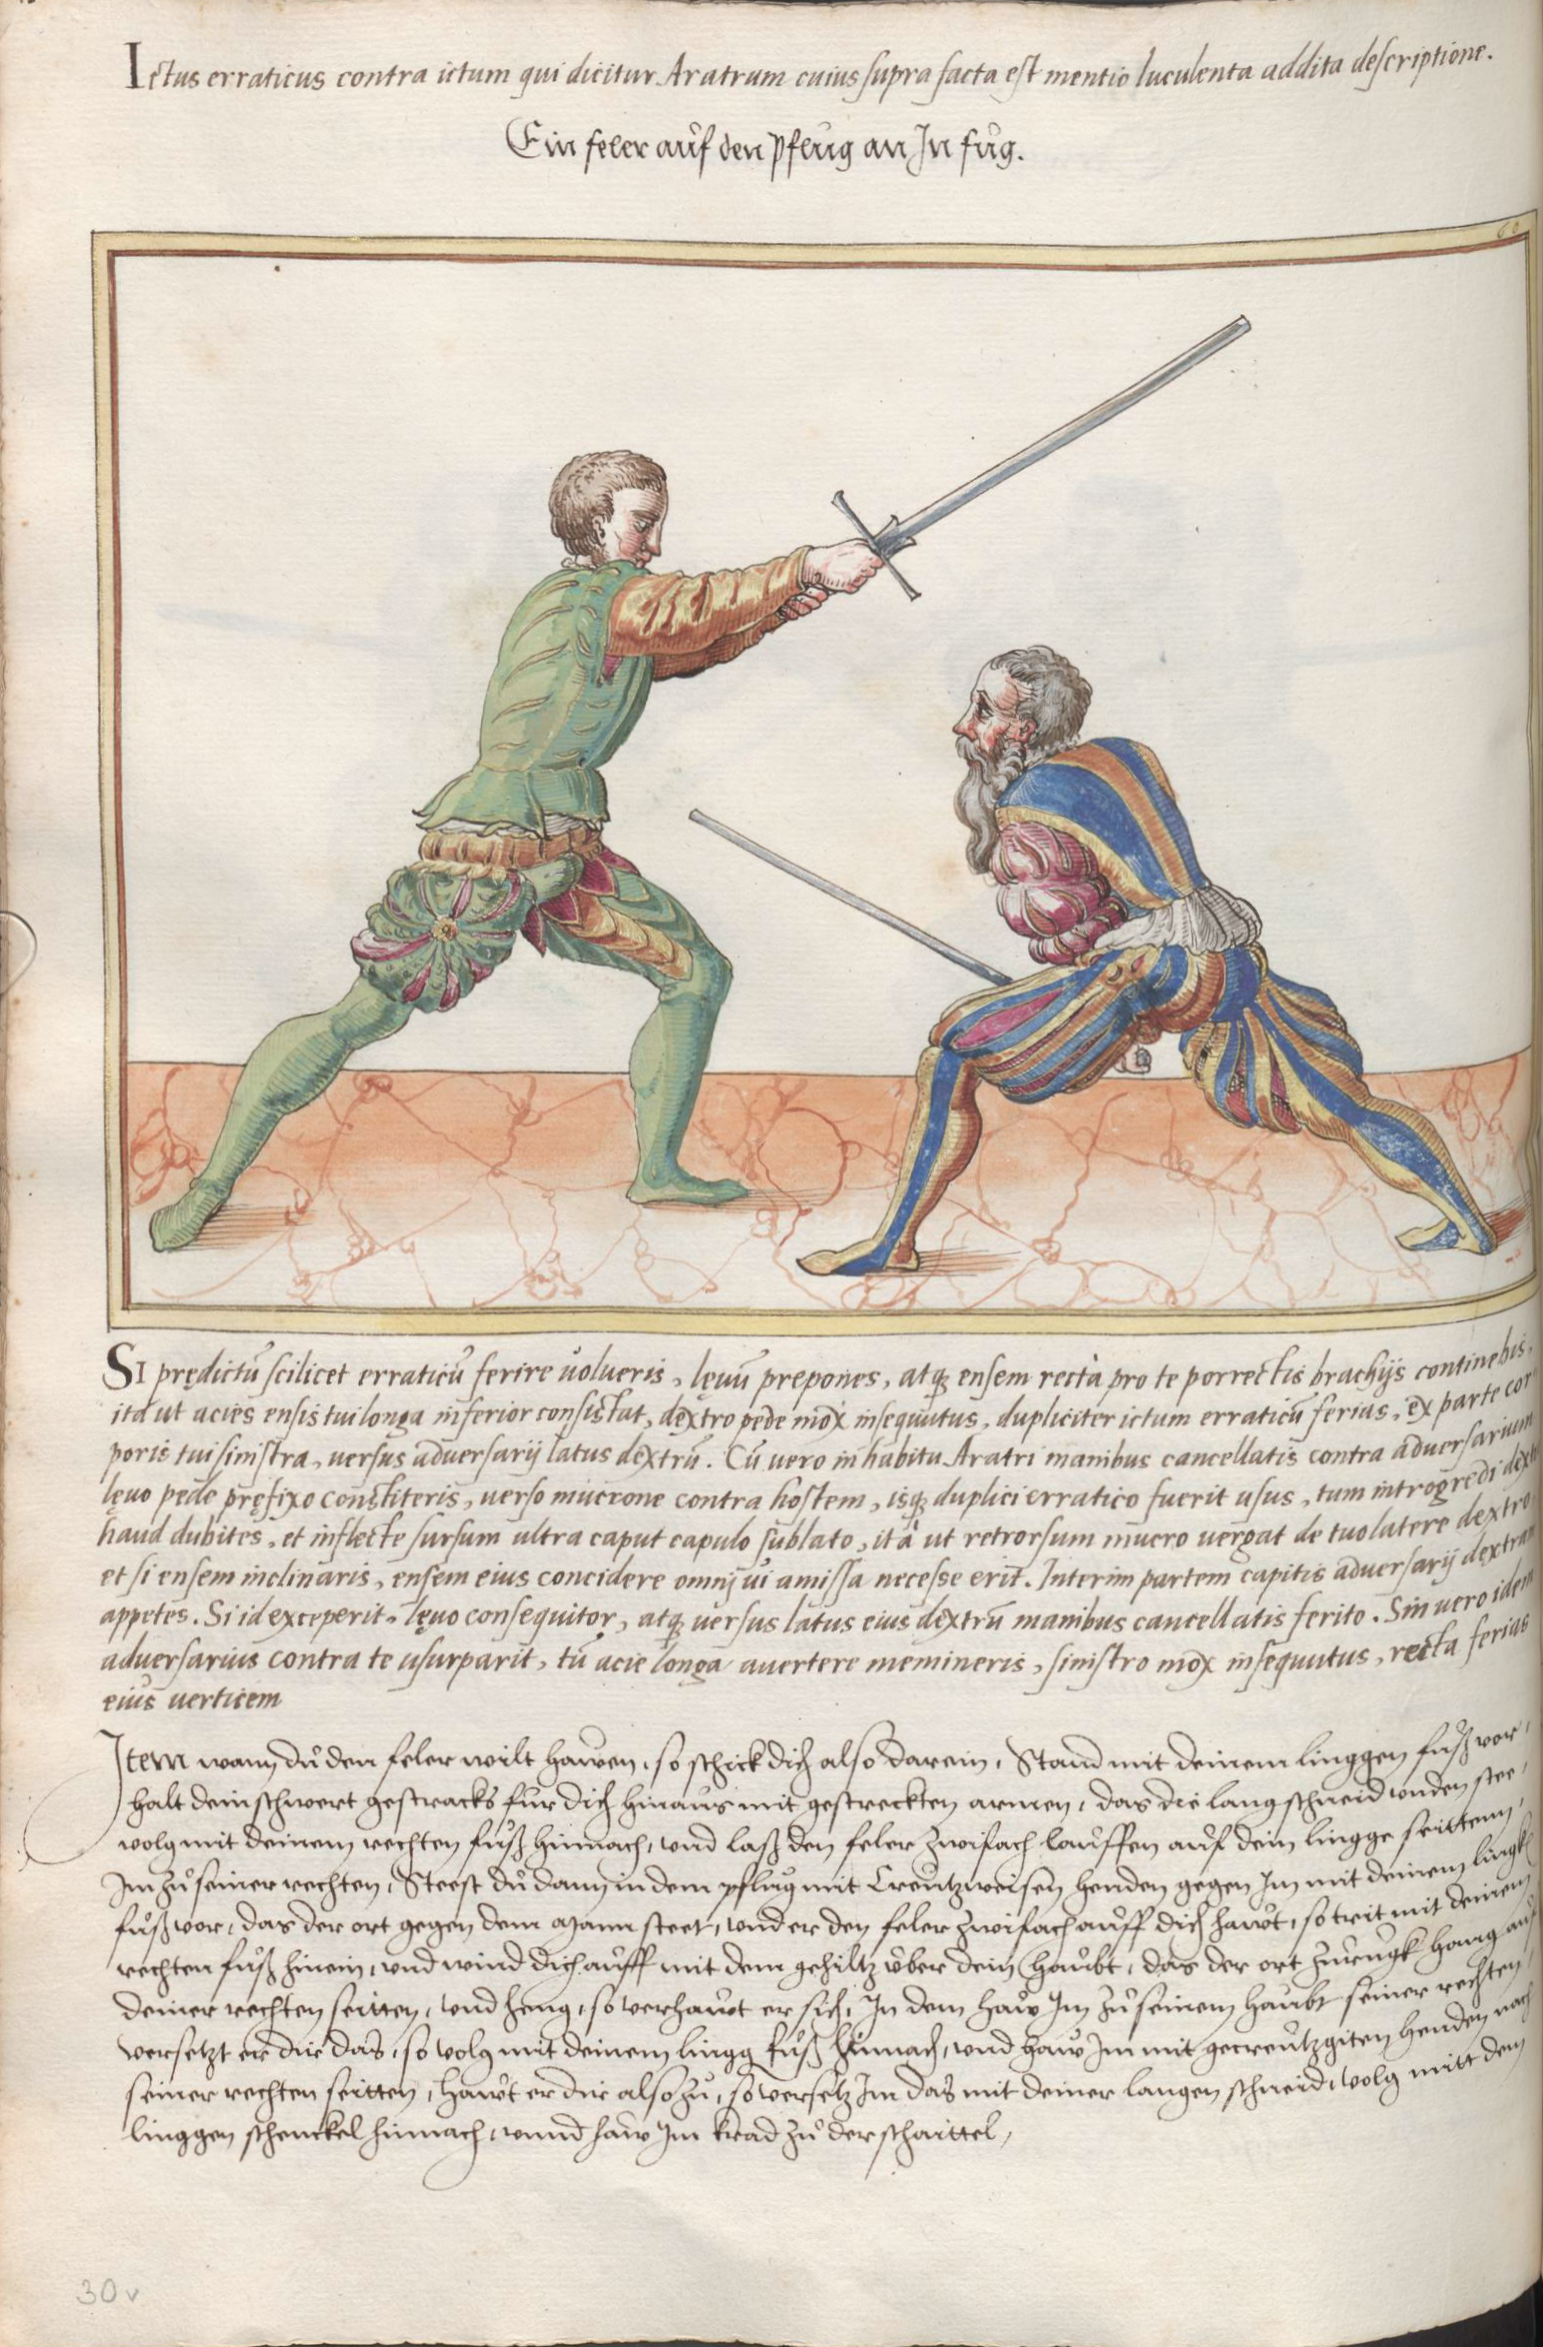 Ictus erraticus contra ictum qui dicitur Aratrum cuius supra facta est mentio luculenta addita descriptione.
Ein feler auf den pflug an Jn fůg.
60
SI prędictū scilicet erraticū ferire uolueris, lęuū prepones, atq; ensem rectà pro te porrectis brachijs continebis,
ita ut acies ensis tui longa inferior consistat, dextro pede mox insequutus, dupliciter ictum erraticū ferias, ex parte cor
poris tui sinistra, versus aduersarij latus dextrū. Cū uero in habitu Aratri manibus cancellatis contra aduersarium
lęuo pede pręfixo constiteris, uerso mucrone contra hostem, isq; duplici erratico fuerit usus, tum introgredi dext
haud dubites, et inflecte sursum ultra caput capulo sublato, ità ut retrorsum mucro uergat de tuo latere dextro,
et si ensem inclinaris, ensem eius concidere omnj ui amissa necesse erit. Interim partem capitis aduersarij dextram
appetes. Si id exceperit, lęuo consequitor, atq; uersus latus eius dextrū manibus cancellatis ferito. Sin uero idem
aduersarius contra te usurparit, tū acie longa auertere memineris, sinistro mox insequutus, recta ferias
eius uerticem
Jtem wann dů den feler wilt hawen, so schick dich also darein, Stand mit deinem linggen fůß vor,
halt dein schwert gestracks fur dich hinaus mit gestreckten armen, das die lang schneid unden stee,
volg mit deinem rechten fůß hinnach, und laß den feler zwifach lauffen auf dein lingge seitten,
Jm zů seiner rechten, Steest dů dann in dem pflug mit Creutzweisen henden gegen Jm mit deinem lingk
fůß vor, das der ort gegen dem Mann steet, und er den feler zwifach auff dich hawt, so trit mit deinem
rechten fůß hinein, und wind dich auff mit dem gehiltz uber dein haubt, das der ort zurugk hang auf
deiner rechten seitten, und heng, so verhawt er sich, Jn dem haw Jm zů seinem haubt seiner rechten,
versetzt er dir das, so volg mit deinem lingg fůß hinnach, und haw Jm mit gecreutzgiten henden nach
seiner rechten seitten, hawt er dir also zů, so versetz Jm das mit deiner langen schneid, volg mitt dem
linggen schenckel hinnach, unnd haw Jm krad zů der schaittel,
30 v